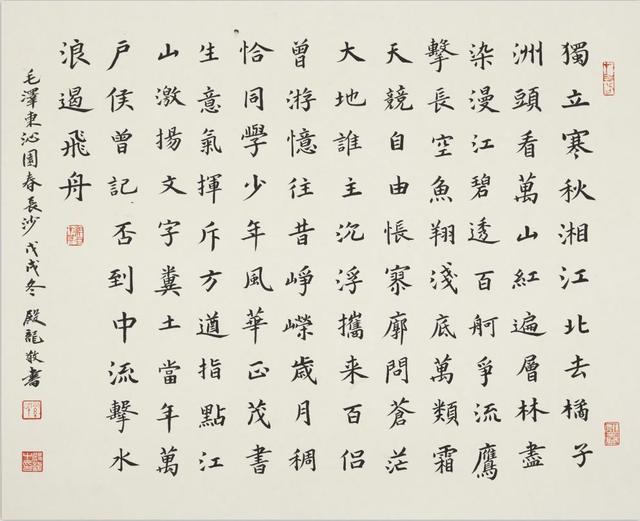 獨立寒秋湘江北去橘子
洲頭看萬山紅遍層林盡
染漫江碧透百舸爭流鷹
擊長空魚翔淺底萬類霜
天競自由悵寥廓問蒼茫
大地誰主沉浮攜来百侶
曾游憶往昔崢嶸歲月稠
恰同學少年風華正茂書
生意氣揮斥方遒指點江
山激揚文字糞土當年萬
戶侯曾記否到中流擊水
浪遏飛舟
毛澤東沁園春長沙戊戌冬殿龍敬書